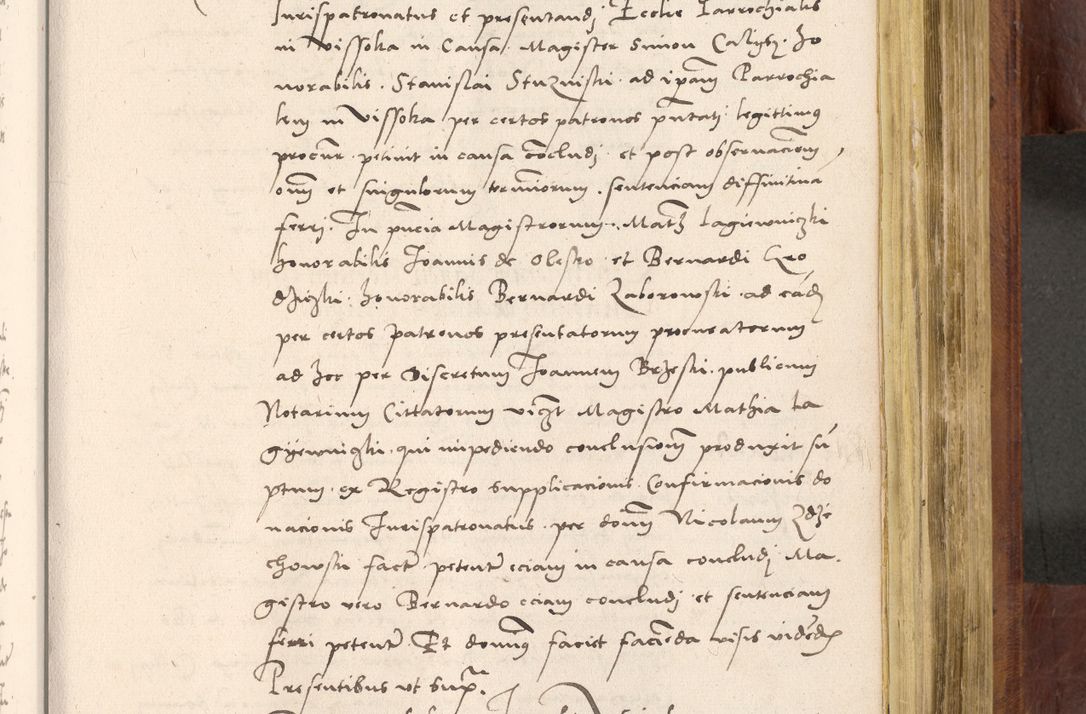 Jurispatronatus et presentandj Ecclie Parrochialis
in Vissoka in Causa Magister Simon Ho
norabilis Stanislai ad ipam Parrochia
lem in Vissoka per certos patronos pntatj legittimus
procur petiuit in causa concludj et post obseruaciem
oim et singulorum terminorum sententiam diffinitiua
ferrj In pncia Magistrorum Math Lagiewniczki
honorabilis Joannis de Olesko et Bernardi Gro
dziczki honorabilis Bernardi Zaborowski ad eadj
per certos Patronos presentatorum procuratorum
ad hoc per Discretum Joannem Brzeski publicum
Notarium Cittatorum vicz Magistro Mathia La
gyewniczki qui impediendo conclusionem produxit sū
ptum ex Registro supplicacionis Confirmacionis do
nacionis Jurispatronatus per donum Nicolaum Zdze
chowski fact petente eciam in causa concludj Ma
gistro vero Bernardo eciam concludj et sentenciam
ferri petente Et dominus faciet facienda visis videdis
Presentibus vt supra